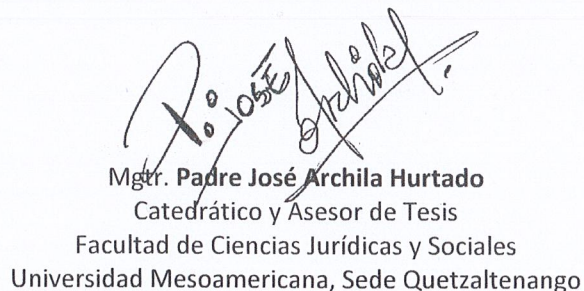 P. JOSÉ Archila
Mgtr. Padre José Archila Hurtado
Catedrático y Asesor de Tesis
Facultad de Ciencias Jurídicas y Sociales
Universidad Mesoamericana, Sede Quetzaltenango